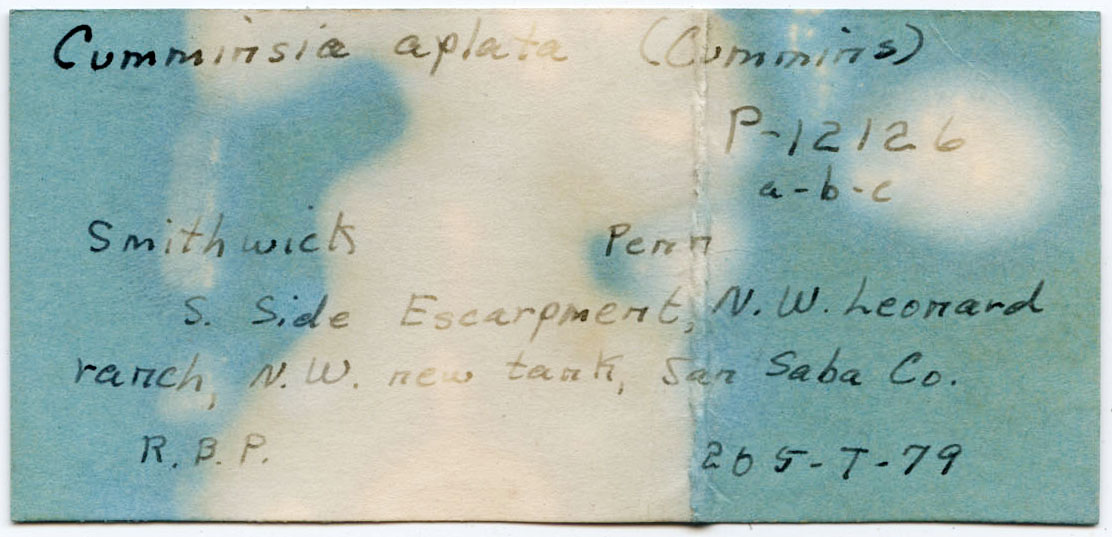 Cumminsia aplata (Cummins)
P-12126
a-b-c
Smithwick Penn
S. Side Escarpment, N.W. Leonard
ranch, N.W. new tank, San Saba Co.
R.B.P. 205-T-79